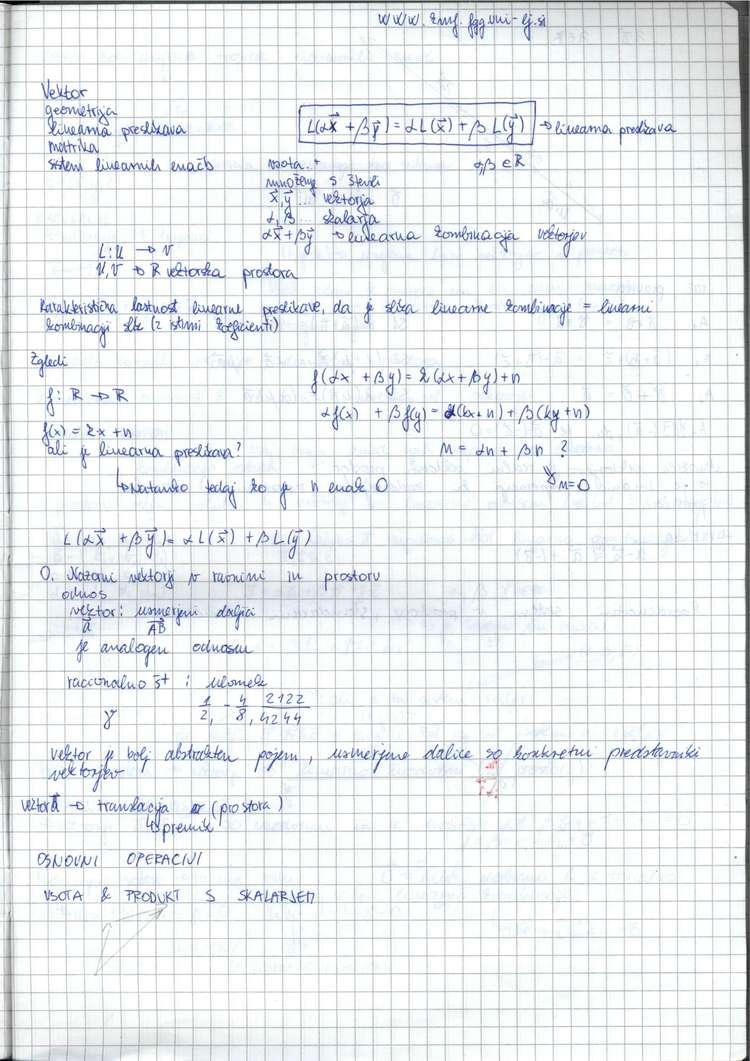 www.kmf.fgg.uni-lj.si
Vektor
geometrija
linearna preslikava
matrika
sistem linearnih enačb
L(αx⃗ + βy⃗) = αL(x⃗) + βL(y⃗) → linearna preslikava
α,β ∈ R
vsota.. +
množenje s števili
x⃗, y⃗ ... vektorja
α, β ... skalarja
αx⃗ + βy⃗ → linearna kombinacija vektorjev
L: U → V
U, V → R vektorska prostora
Karakteristična lastnost linearne preslikave, da je slika linearne kombinacije = linearni
kombinaciji slik (z istimi koeficienti)
Zgledi
f: R → R
f(x) = kx + n
ali je linearna preslikava?
↳ Natanko tedaj ko je n enak 0
f(αx + βy) = k(αx + βy) + n
αf(x) + βf(y) = α(kx + n) + β(ky + n)
n = αn + βn ?
n = 0
L(αx⃗ + βy⃗) = αL(x⃗) + βL(y⃗)
0. Nazorni vektorji v ravnini in prostoru
odnos
vektor : usmerjeni daljici
a⃗ AB⃗
je analogen odnosu
racionalno št : ulomek
1/2, 4/8, 2122/4244
vektor je bolj abstrakten pojem, usmerjene dalice so konkretni predstavniki
vektorjev
vektor a⃗ → translacija (prostora)
↳ premik
OSNOVNI OPERACIJI
VSOTA & PRODUKT S SKALARJEM